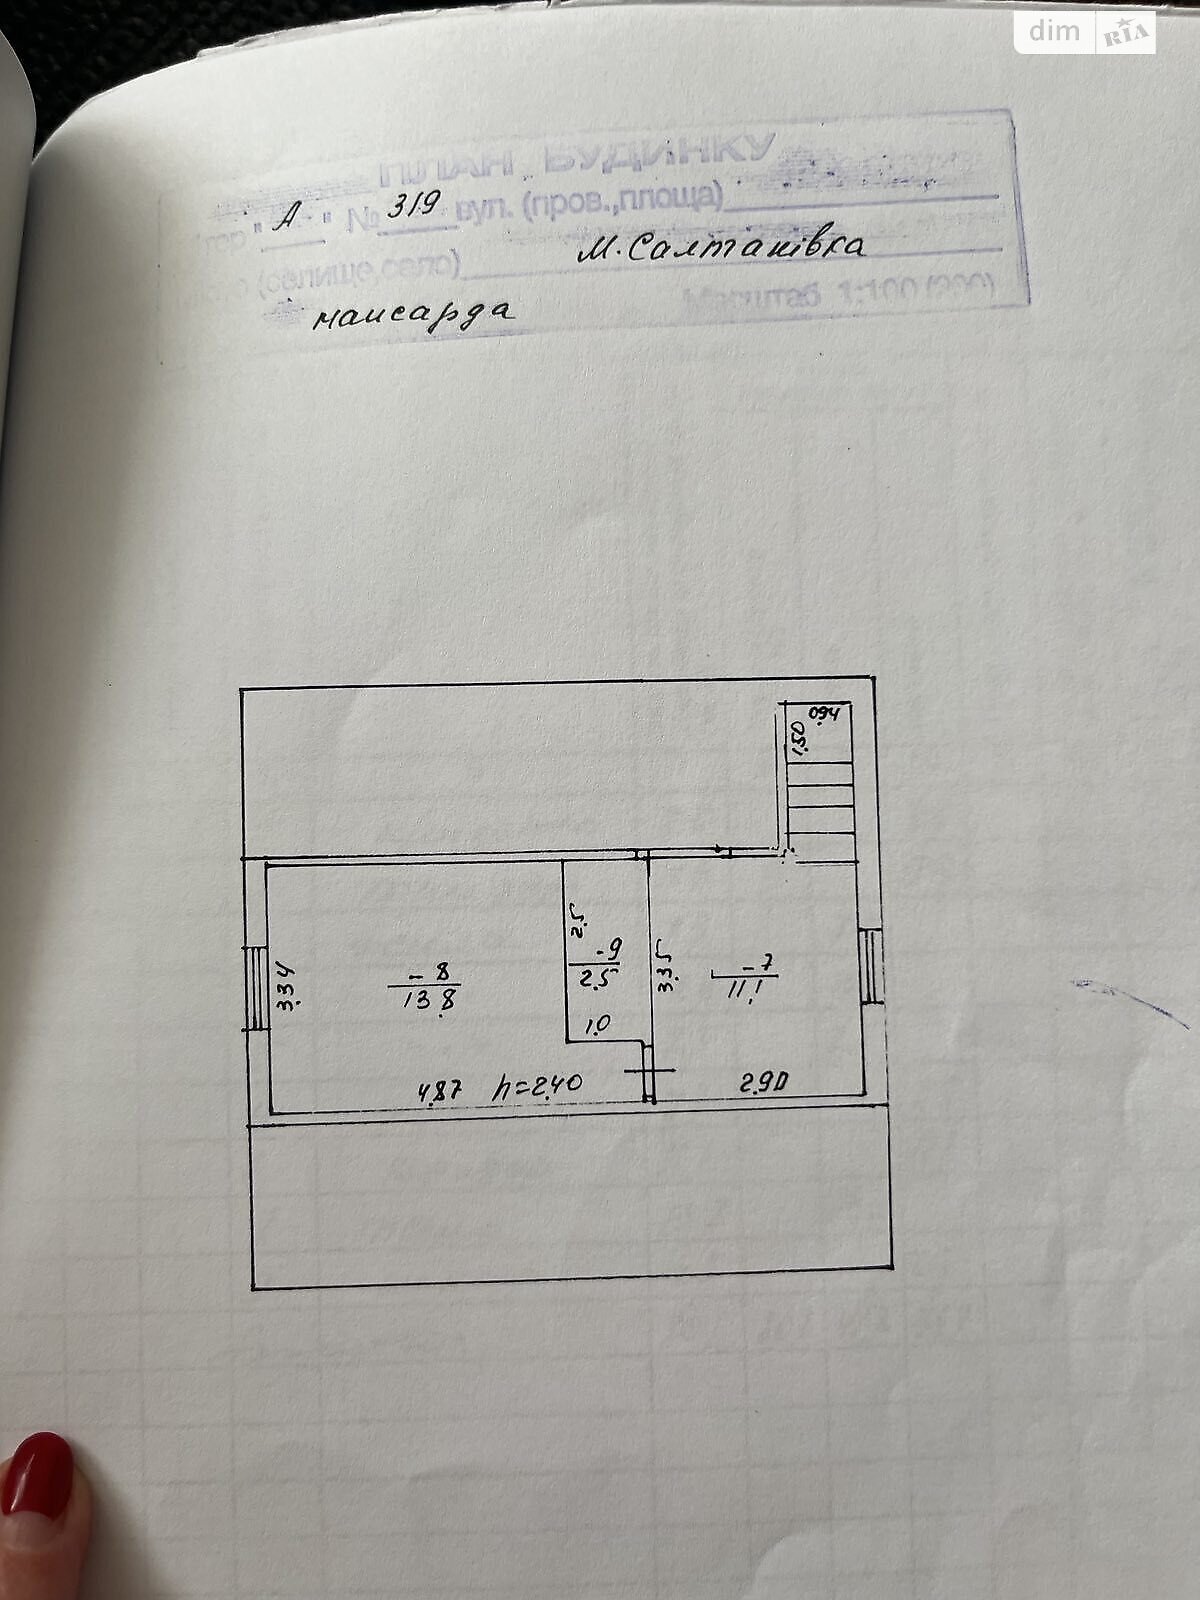 dim RIA
ПЛАН БУДИНКУ
"А" № 319 вул. (пров.,площа)
(селище,село) М. Салтанівка
мансарда Масштаб 1:100 (200)
0.94
1.50
2.5
-9
2.5
1.0
3.34
-8
13.8
3.35
-7
11.1
4.87 h=2.40
2.90